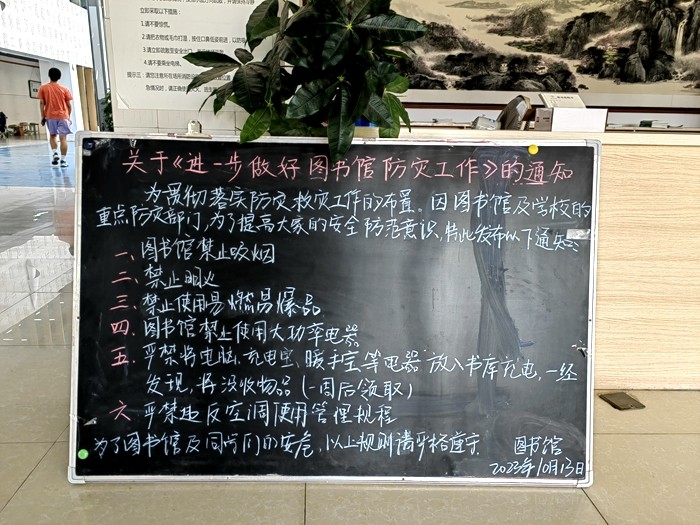 立即采取以下措施：
1.请不要惊慌。
4.请不要乘坐电梯。
关于《进一步做好图书馆防灾工作》的通知
为贯彻落实防灾救灾工作的布置。因图书馆及学校的
重点防灾部门,为了提高大家的安全防范意识,特此发布以下通知：
一、图书馆禁止吸烟
二、禁止明火
三、禁止使用易燃易爆品
四、图书馆禁止使用大功率电器
五、严禁将电脑、充电宝、暖手宝等电器放入书库充电,一经
发现,将没收物品(一周后领取)
六、严禁违反空调使用管理规程
为了图书馆及同学们的安危,以上规则请严格遵守.
图书馆
2023年10月13日